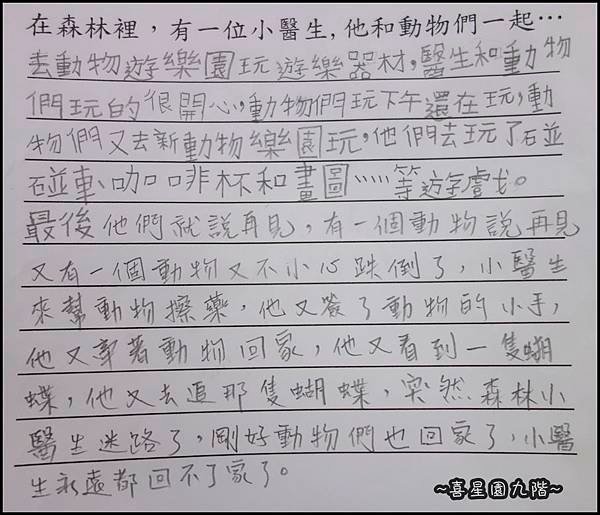 在森林裡，有一位小醫生，他和動物們一起…
去動物遊樂園玩遊樂器材，醫生和動物
們玩的很開心，動物們玩下午還在玩，動
物們又去新動物樂園玩，他們去玩了碰
碰車、咖啡杯和畫圖……等遊戲。
最後他們就說再見，有一個動物說再見
又有一個動物又不小心跌倒了，小醫生
來幫動物擦藥，他又簽了動物的小手，
他又牽著動物回家，他又看到一隻蝴
蝶，他又去追那隻蝴蝶，突然森林小
醫生迷路了，剛好動物們也回家了，小醫
生永遠都回不了家了。
~喜星園九階~